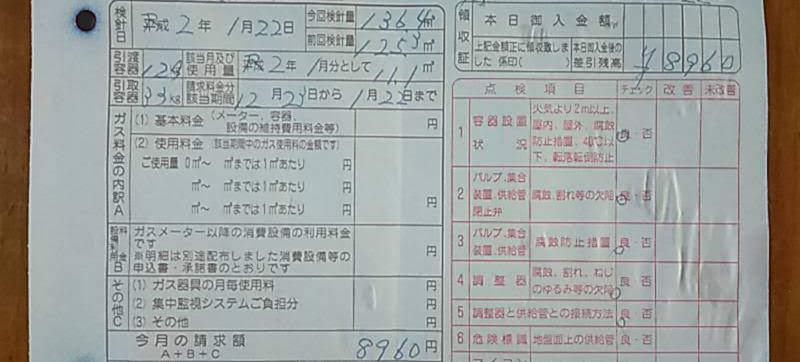 検針日 平成2年1月22日 今回検針量 136.4㎥
前回検針量 125.3㎥
引渡容器 該当月及び使用量 平2年1月分として 11.1㎥
引取容器 33kg 請求料金分該当期間 12月23日から1月22日まで
ガス料金の内訳A
(1) 基本料金(メーター、容器、設備の維持費用料金等) 円
(2) 使用料金(該当期間中のガス使用料の金額です)
ご使用量 0㎥〜 ㎥までは1㎥あたり 円
㎥〜 ㎥までは1㎥あたり 円
㎥〜 ㎥までは1㎥あたり 円
設備利用料金B
ガスメーター以降の消費設備の利用料金です
※明細は別途配布しました消費設備等の申込書・承諾書のとおりです
円
その他C
(1) ガス器具の月毎使用料 円
(2) 集中監視システムご負担分 円
(3) その他 円
今月の請求額
A+B+C
8960円
領収証
本日御入金額
上記金額正に領収致しました 係印( )
本日御入金後の差引残高 ¥8960
点検項目 チェック 改善 未改善
1 容器設置状況 火気より2m以上、屋内、屋外、腐蝕防止措置、40℃以下、転落転倒防止 良・否
2 バルブ、集合装置、供給管閉止弁 腐蝕、割れ等の欠陥 良・否
3 バルブ、集合装置、供給管 腐蝕防止措置 良・否
4 調整器 腐蝕、割れ、ねじのゆるみ等の欠陥
5 調整器と供給管との接続方法 良・否
6 危険標識 地盤面上の供給管 良・否